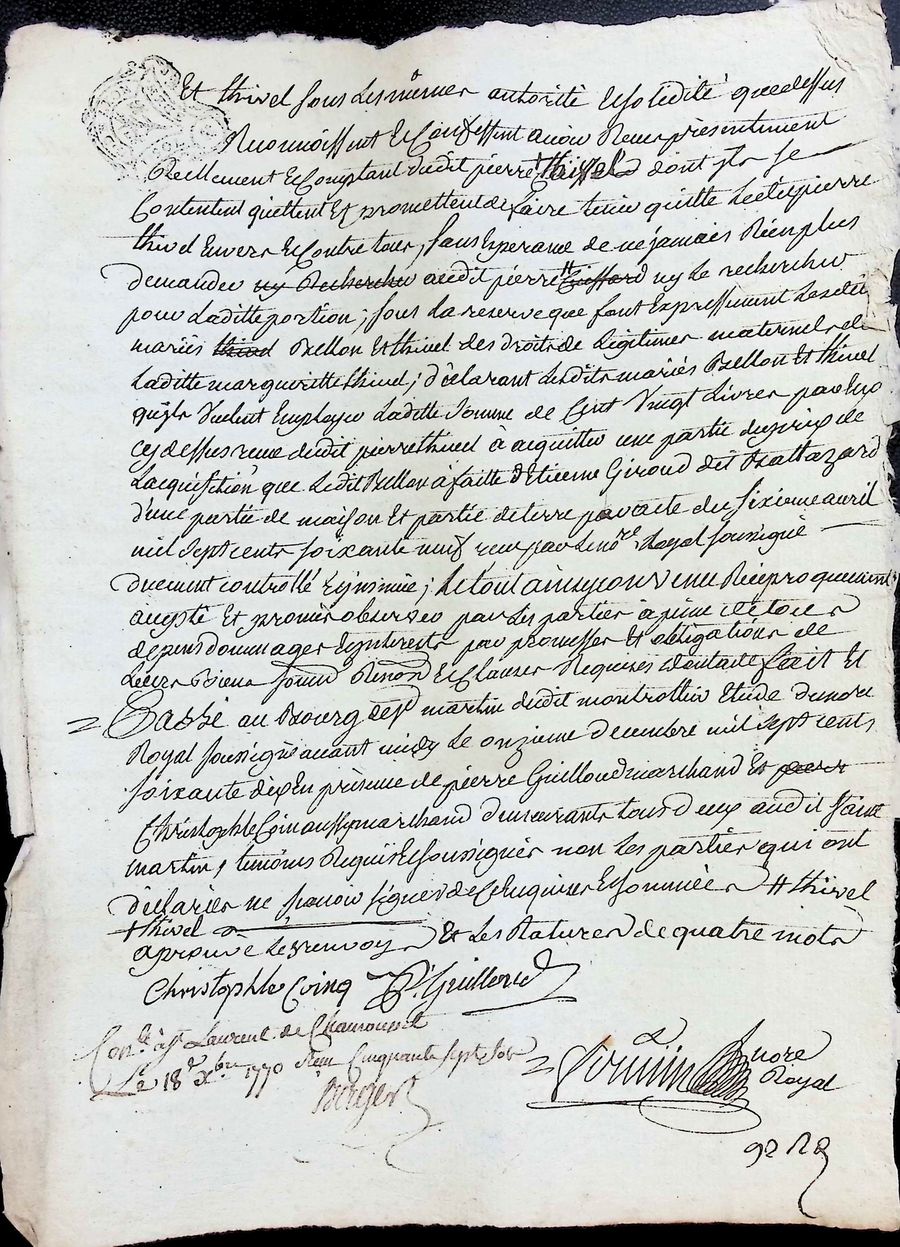 Et thivel sous les mêmes autorité et solidité que dessus
Reconnoissent et Confessent avoir Receu présentement
Reellement et Comptant dudit pierre dont ils se
Contentent quittent Et promettent de faire tenir quitte ledit pierre
thivel Envers et Contre tous, sans Esperance de ne jamais Rien plus
demander ny Rechercher audit pierre ny le rechercher
pour Laditte portion; sous La reserve que font Expressement Lesdits
mariés thivel Bellon Et thivel des droits de Legitimes maternels de
Laditte margueritte thivel; déclarant Lesdits mariés Bellon Et thivel
qu'ils Veulent Employer Laditte somme de Cent Vingt Livres par Eux
cy dessus receue dudit pierre thivel à acquitter une partie du prix de
Lacquisition que Ledit Bellon à faitte d'Etienne Giroud dit Baltazard
d'une partie de maison Et partie de terre par acte du sixieme avril
mil sept cents soixante neuf receu par Le nore. Royal soussigné
duement controllé Et insinué; Le tout ainsy convenu Réciproquement
accepté Et promis observer par Les parties à peine de tous
depens dommages Et interests par promesses Et obligations de
Leurs Biens soumis Renon Et Clauses Requises dont acte fait Et
Passé au Bourg de St martin dudit montrottier Etude du nore
Royal soussigné avant midy Le onzieme decembre mil sept cents
soixante dix En présence de pierre Guilloud marchand Et
Christophle Coinq aussy marchand demeurants tous deux audit Saint
martin, temoins Requis Et soussignés non Les parties qui ont
déclarées ne sçavoir signer de ce Enquises Et sommées # thivel
+ thivel
aprouvé Les renvoys Et Les Ratures de quatre mots
Christophle Coinq P. Guilloud
Conlé à St Laurent de Chamousset
Le 18e Xbre 1770 Reçu Cinquante sept sols
nore
Royal